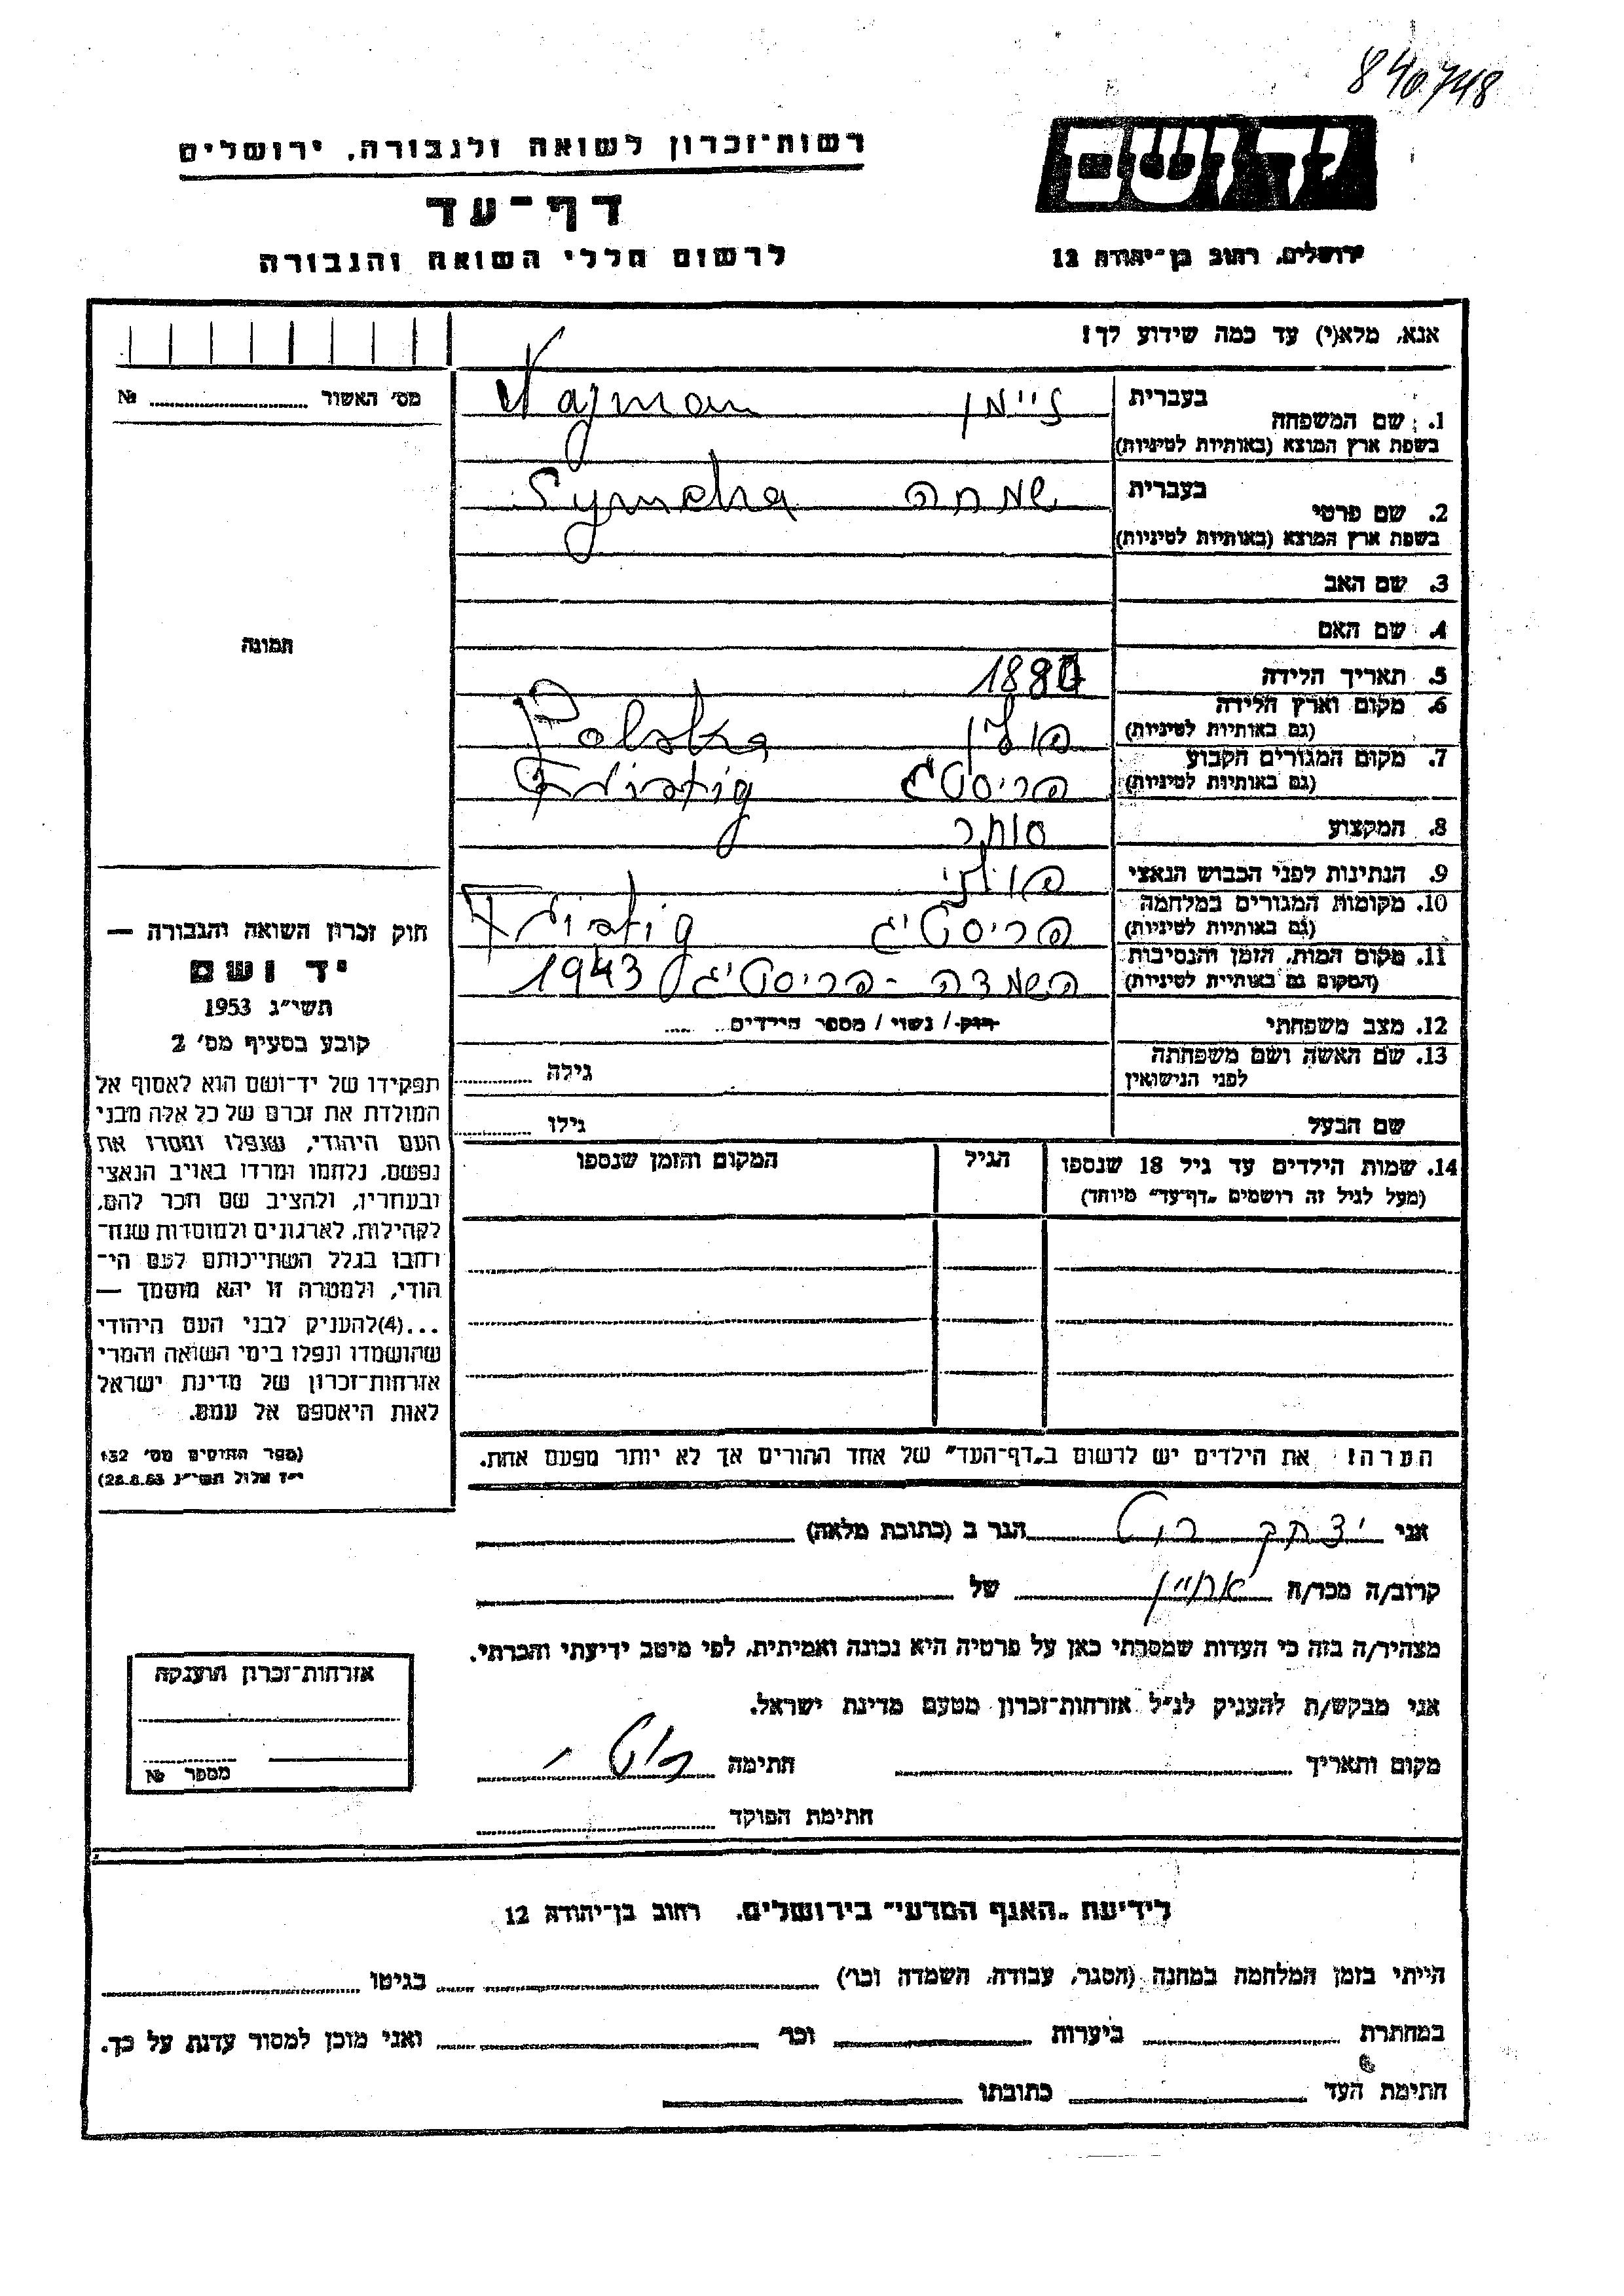 840748
יד ושם
רשות־זכרון לשואה ולגבורה, ירושלים
דף־עד
לרשום חללי השואה והגבורה
ירושלים, רחוב בן־יהודה 12
אנא, מלא(י) עד כמה שידוע לך!
מס' האשור № 
בעברית
1. שם המשפחה
בשפת ארץ המוצא (באותיות לטיניות)
Najman
בעברית שמחה
2. שם פרטי
בשפת ארץ המוצא (באותיות לטיניות)
Symcha
3. שם האב
4. שם האם
5. תאריך הלידה
6. מקום וארץ הלידה פולין Polska
(גם באותיות לטיניות)
7. מקום המגורים הקבוע
(גם באותיות לטיניות)
8. המקצוע סוחר
9. הנתינות לפני הכבוש הנאצי פולני
10. מקומות המגורים במלחמה פריסטיג
(גם באותיות לטיניות)
11. מקום המות, הזמן והנסיבות השמדה - פריסטיג 1943
(המקום גם באותיית לטיניות)
12. מצב משפחתי רוק / נשוי / מספר הילדים
13. שם האשה ושם משפחתה גילה
לפני הנישואין
שם הבעל גילו
14. שמות הילדים עד גיל 18 שנספו הגיל המקום והזמן שנספו
(מעל לגיל זה רושמים „דף־עד" מיוחד)
הערה! את הילדים יש לרשום ב„דף־העד" של אחד ההורים אך לא יותר מפעם אחת.
תמונה
חוק זכרון השואה והגבורה —
יד ושם
תשי"ג 1953
קובע בסעיף מס' 2
תפקידו של יד־ושם הוא לאסוף אל
המולדת את זכרם של כל אלה מבני
העם היהודי, שנפלו ומסרו את
נפשם, נלחמו ומרדו באויב הנאצי
ובעוזריו, ולהציב שם וזכר להם,
לקהילות, לארגונים ולמוסדות שנח־
רבו בגלל השתייכותם לעם הי־
הודי, ולמטרה זו יהא מוסמך —
...(4)להעניק לבני העם היהודי
שהושמדו ונפלו בימי השואה והמרי
אזרחות־זכרון של מדינת ישראל
לאות היאספם אל עמם.
(ספר החוקים מס' 132
י"ז אלול תשי"ג 28.8.53)
אני יצחק רוט הגר ב (כתובת מלאה)
קרוב/ה מכר/ה אחיין של
מצהיר/ה בזה כי העדות שמסרתי כאן על פרטיה היא נכונה ואמיתית, לפי מיטב ידיעתי והכרתי.
אני מבקש/ת להעניק לנ"ל אזרחות־זכרון מטעם מדינת ישראל.
מקום ותאריך חתימה רוט י
חתימת הפוקד
אזרחות־זכרון הוענקה
מספר №
לידיעת „האגף המדעי" בירושלים, רחוב בן־יהודה 12
הייתי בזמן המלחמה במחנה (הסגר, עבודה, השמדה וכו') בגיטו
במחתרת ביערות וכו' ואני מוכן למסור עדות על כך.
חתימת העד כתובתו